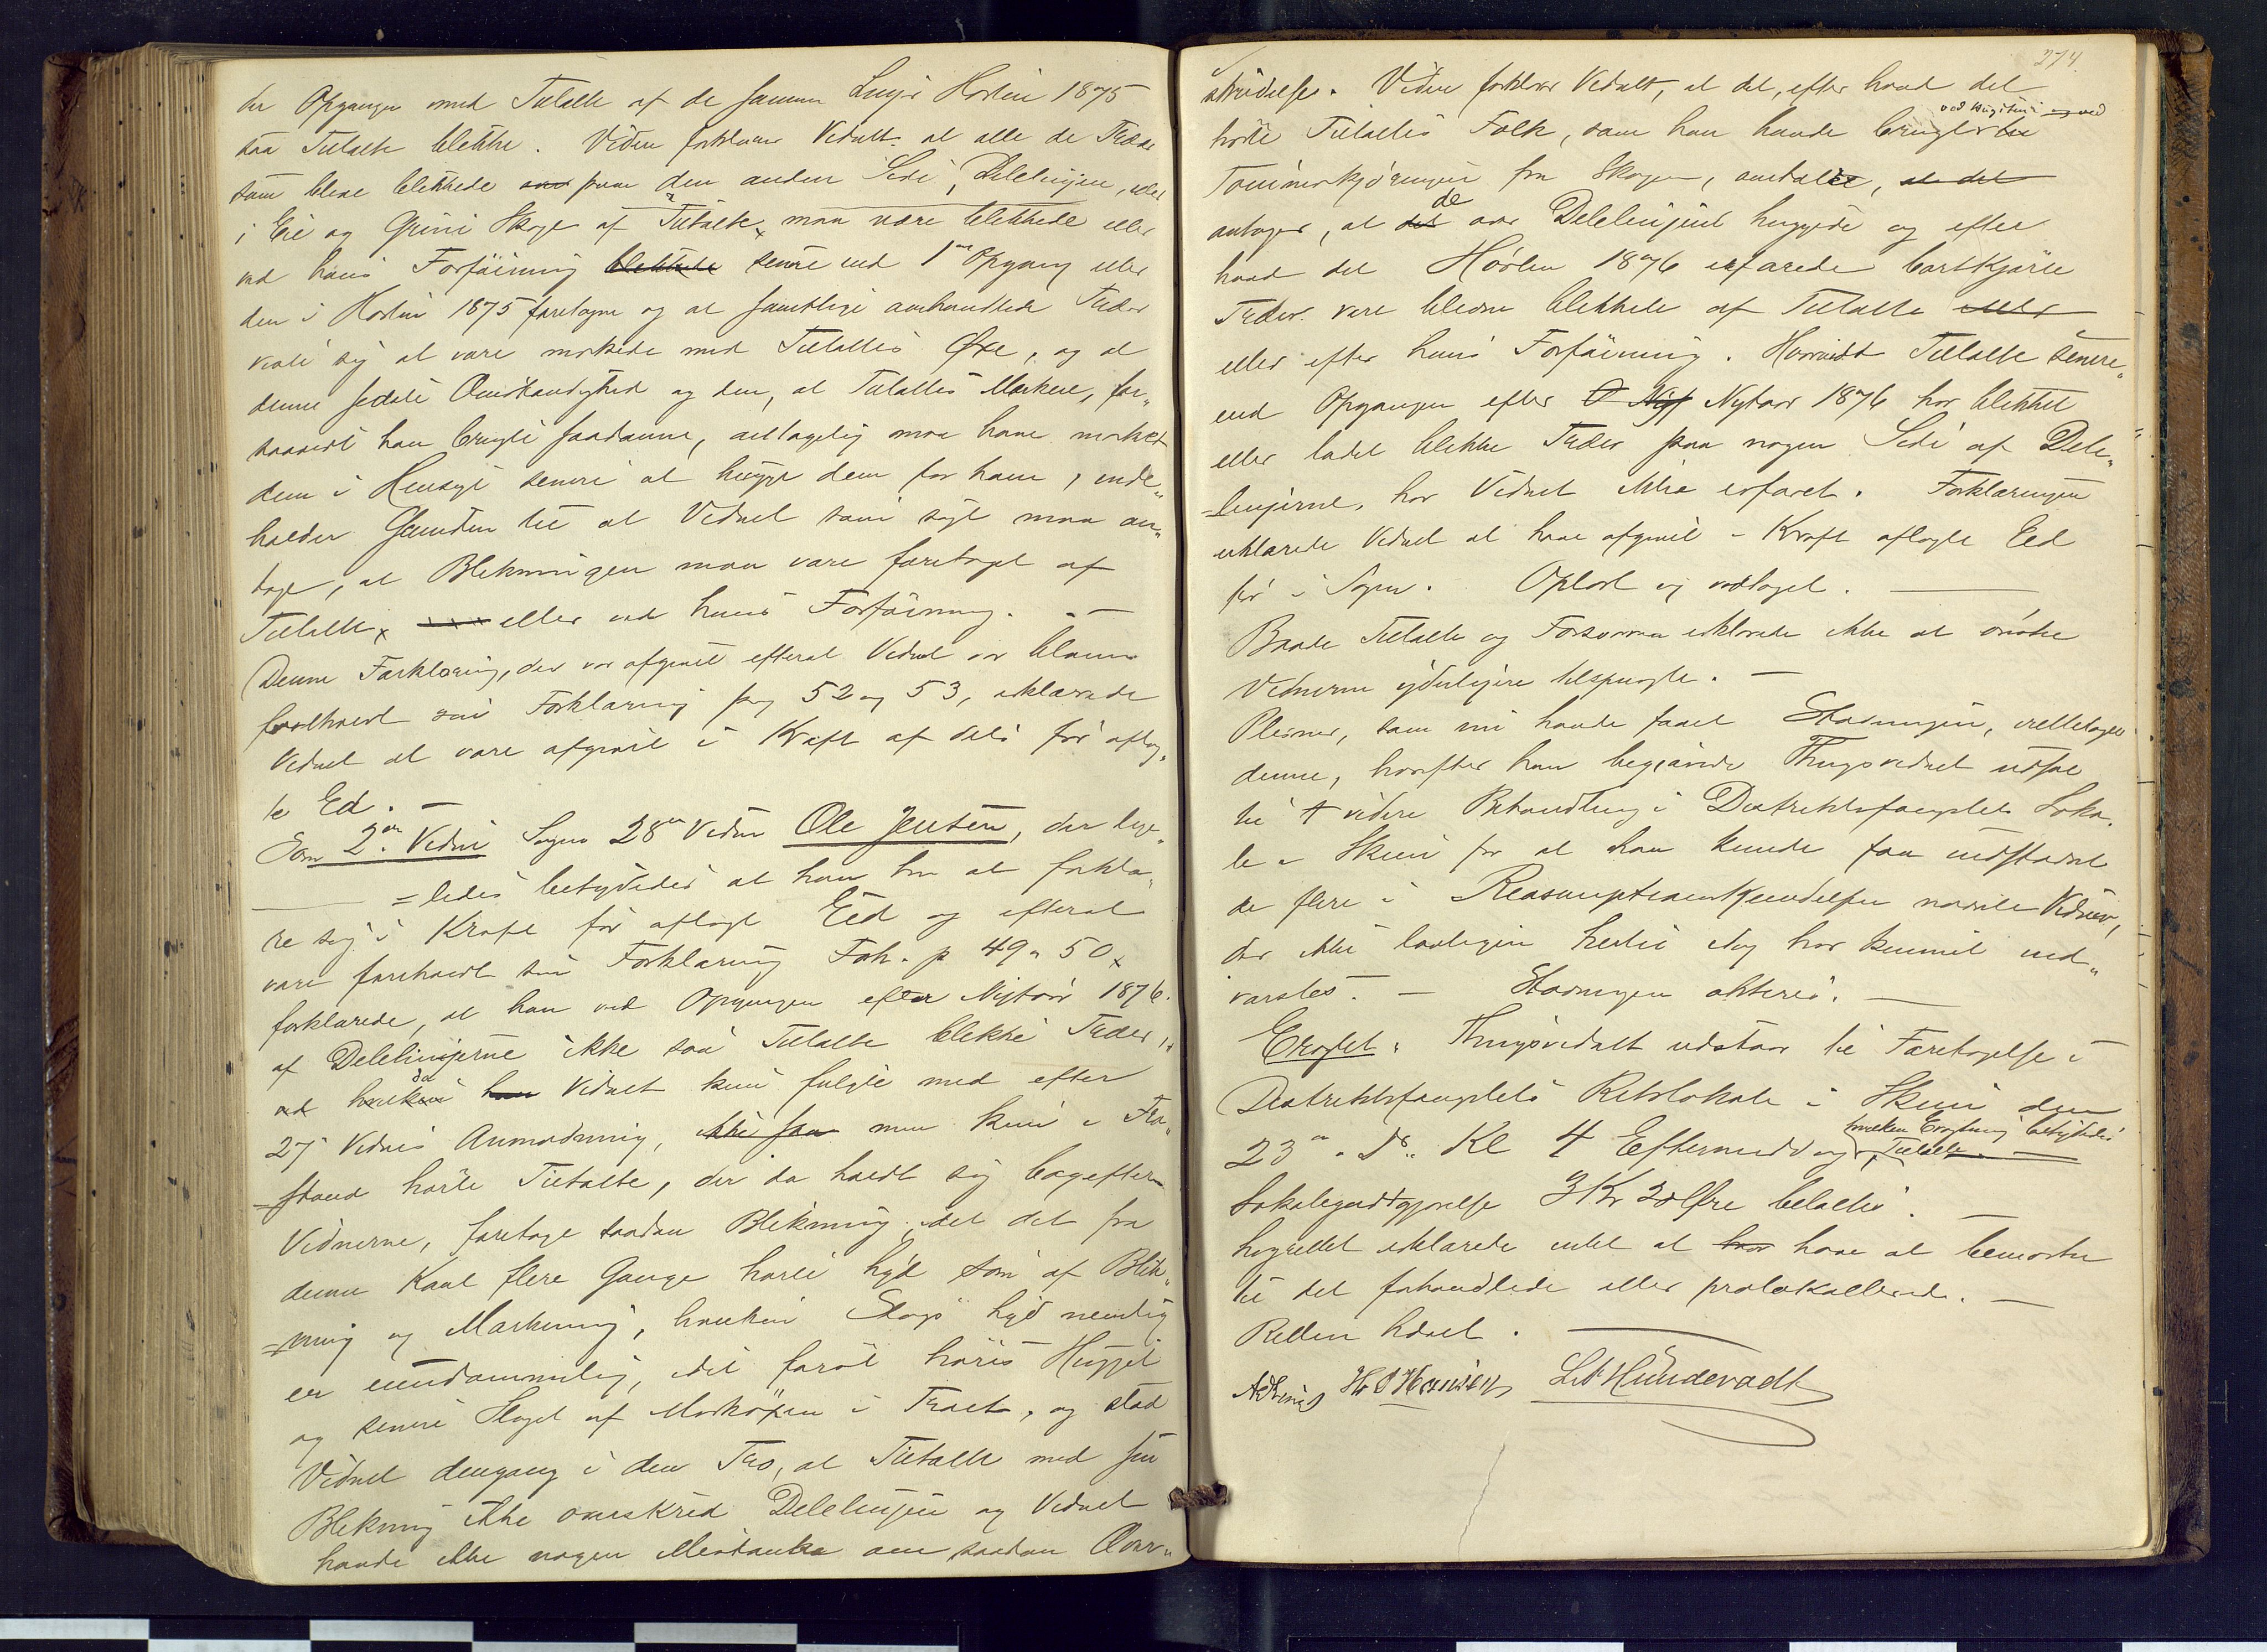 der Opgangen med Tiltalte af de samme Linjer Høsten 1875
saa Tiltalte blekke. Vidnet forklarer Vidalt. at alle de Træer
som bleve blekkede paa den anden Side Delelinjen, eller
i Eie og Grini Skoge af Tiltalte, maa være blekkede eller
ved hans Forføining blekkede senere end 1ste Opgang eller
den i Høsten 1875 foretagne og at samtlige omhandlede Træer
viste sig at være mærkede med Tiltaltes Øxe, og at
denne sidste Omstændighed og den, at Tiltaltes Mærkere, for„
saavidt han brugte saadanne, antagelig maa have mærket
dem i Hensigt senere at hugge dem for ham, inde„
holder Grunden til at Vidnet som sagt maa an„
tage, at Blekningen maa være foretaget af
Tiltalte, eller ved hans Forføining. –
Denne Forklaring, der var afgivet efterat Vidnet var bleven
foreholdt sin Forklaring pag 52 og 53, erklærede
Vidnet at være afgivet i Kraft af dets før aflag„
te Ed. –
Som 2det Vidne Sagens 28de Vidne Ole Jensen, der lige„
=ledes betydedes at han har at forkla„
re sig i Kraft før aflagt Eed og efterat
være foreholdt sin Forklaring Fork. p 49 & 50
forklarede, at han ved Opgangen efter Nytaar 1876
af Delelinjerne ikke saa Tiltalte blekke Træer,
ved hvilken da Vidnet kun fulgte med efter
27 Vidnes Anmodning, ikke saa men kun i Fra„
=stand hørte Tiltalte, der da holdt sig bagefter
Vidnerne, foretage saadan Blekning, idet det fra
denne Kant flere Gange hørte Lyd som af Blek„
=ning og Mærkning, hvilken Slags Lyd nemlig
er eiendommelig, idet først høres Hugget
og senere Slaget af Mærkøxen i Træet, og stod
Vidnet dengang i den Tro, at Tiltalte med sin
Blekning ikke overskred Delelinjen og Vidnet
havde ikke nogen Mistanke om saadan Over„
274.
skridelse. Vidnet forklarer Vidalt, at det, efter hvad det
ved Hugsten og ved
hørte Tiltaltes Folk, som han havde brugt
Tømmerkjøringen fra Skogen, omtale, at det
antager, at de over Delelinjent huggede og efter
hvad det Høsten 1876 erfarede bortkjørte
Træer vare blevne blekkede af Tiltalte eller
eller efter hans Forføining. Hvorvidt Tiltalte senere„
end Opgangen efter Nytaar 1876 har blekket
eller ladet blekke Træer paa nogen Side af Dele„
=linjerne, har Vidnet ikke erfaret. Forklaringen
erklærede Vidnet at have afgivet i Kraft aflagte Eed
før i Sagen. Oplæst og vedtaget. –
Baade Tiltalte og Forsvarer erklærede ikke at ønske
Vidnerne yderligere tilspurgte. –
Plesner, som nu havde faaet Stævningen, irettelagde
denne, hvorefter han begjærede Thingsvidnet udsat
til videre Behandling i Distriktsfængslets Loka„
le i Skien for at han kunde faa indstævnet
de flere i Reasumptionskjendelsen nævnte Vidner,
der ikke lovligen hertil idag har kunnet ind„
varsles. – Stævningen akteres. –
Eragtet: Thingsvidnet udstaar til Foretagelse i
Distriktsfængslets Retslokale i Skien den
23de ds. Kl 4 Eftermiddag, hvilken Eragtning betydedes
Tiltalte. –
Lokalegodtgjørelse 3 Kr 20 Øre betaltes. –
Lagrettet erklærede intet at have at bemærke
til det forhandlede eller protokollerede. –
Retten hævet. –
H O Hansen L. Hundevadt